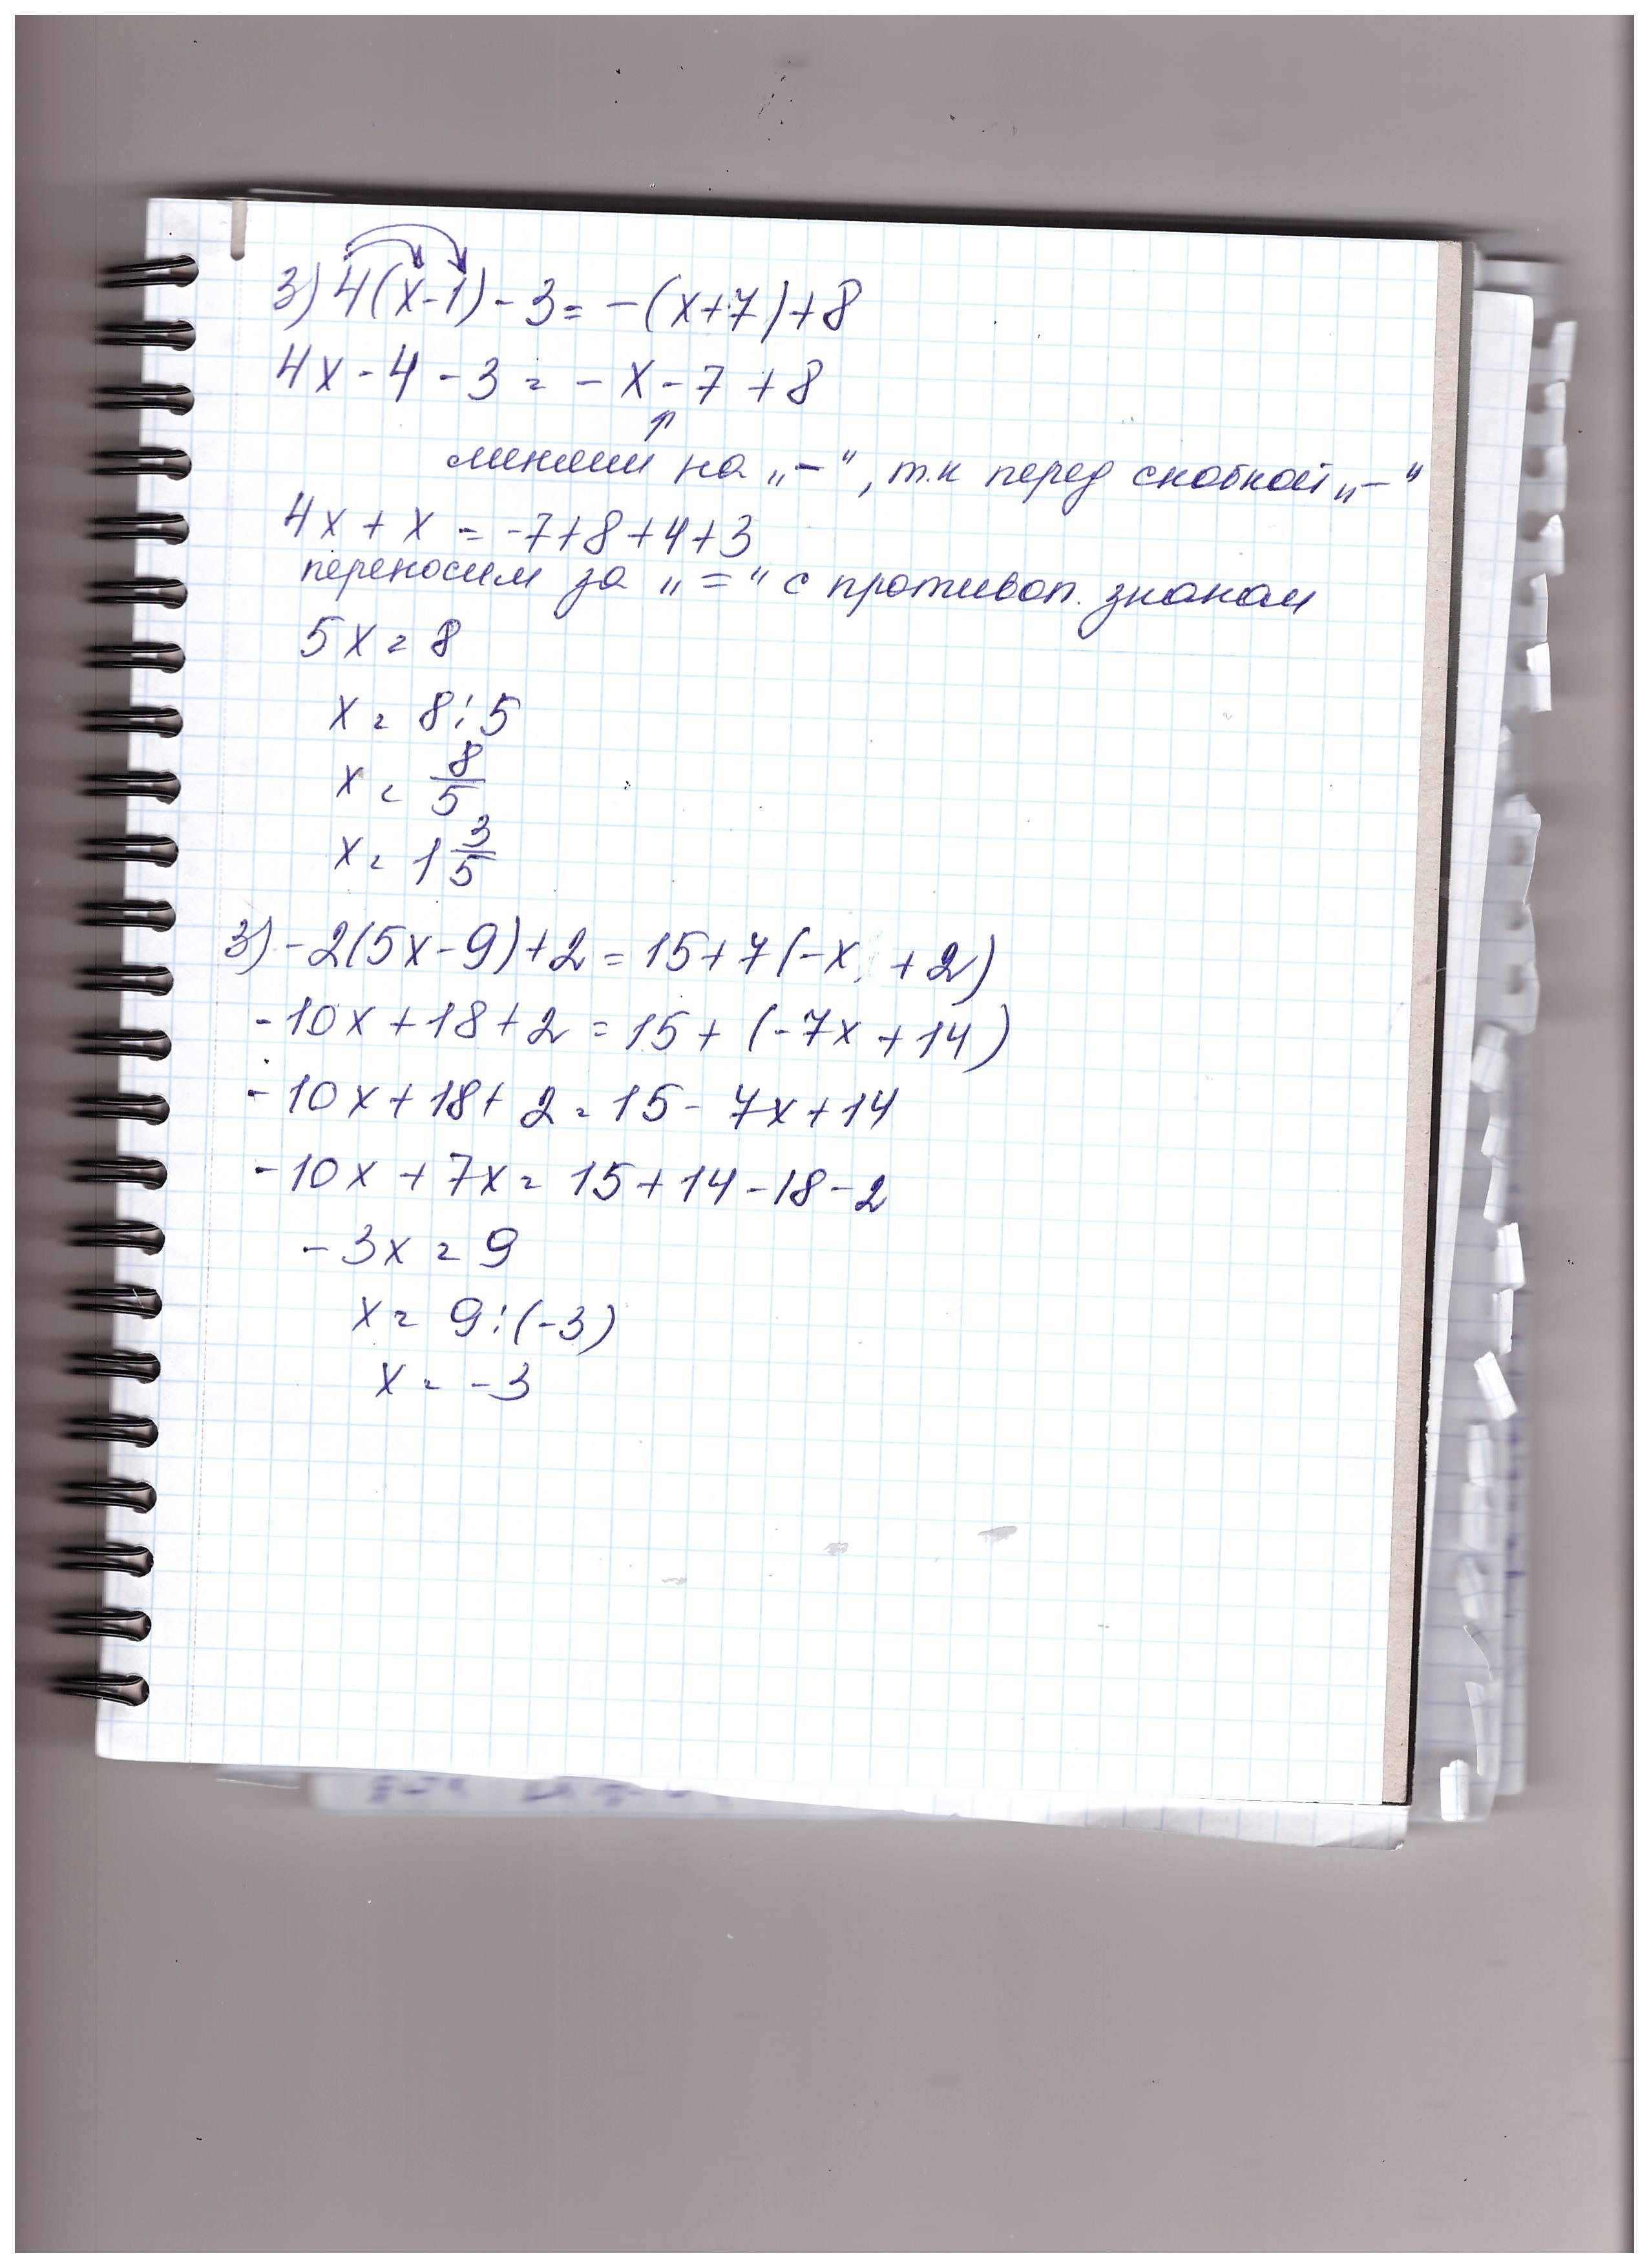 3) 4(x-1) - 3 = -(x+7)+8
4x - 4 - 3 = - x - 7 + 8
меняем на „-“, т.к перед скобкой „-“
4x + x = -7+8+4+3
переносим за „=“ с противоп. знаком
5x = 8
x = 8:5
x = 8/5
x = 1 3/5
3) -2(5x-9)+2 = 15+7(-x +2)
-10x+18+2 = 15+ (-7x +14)
-10x+18+2 = 15- 7x+14
-10x + 7x = 15+14-18-2
-3x = 9
x = 9:(-3)
x = -3